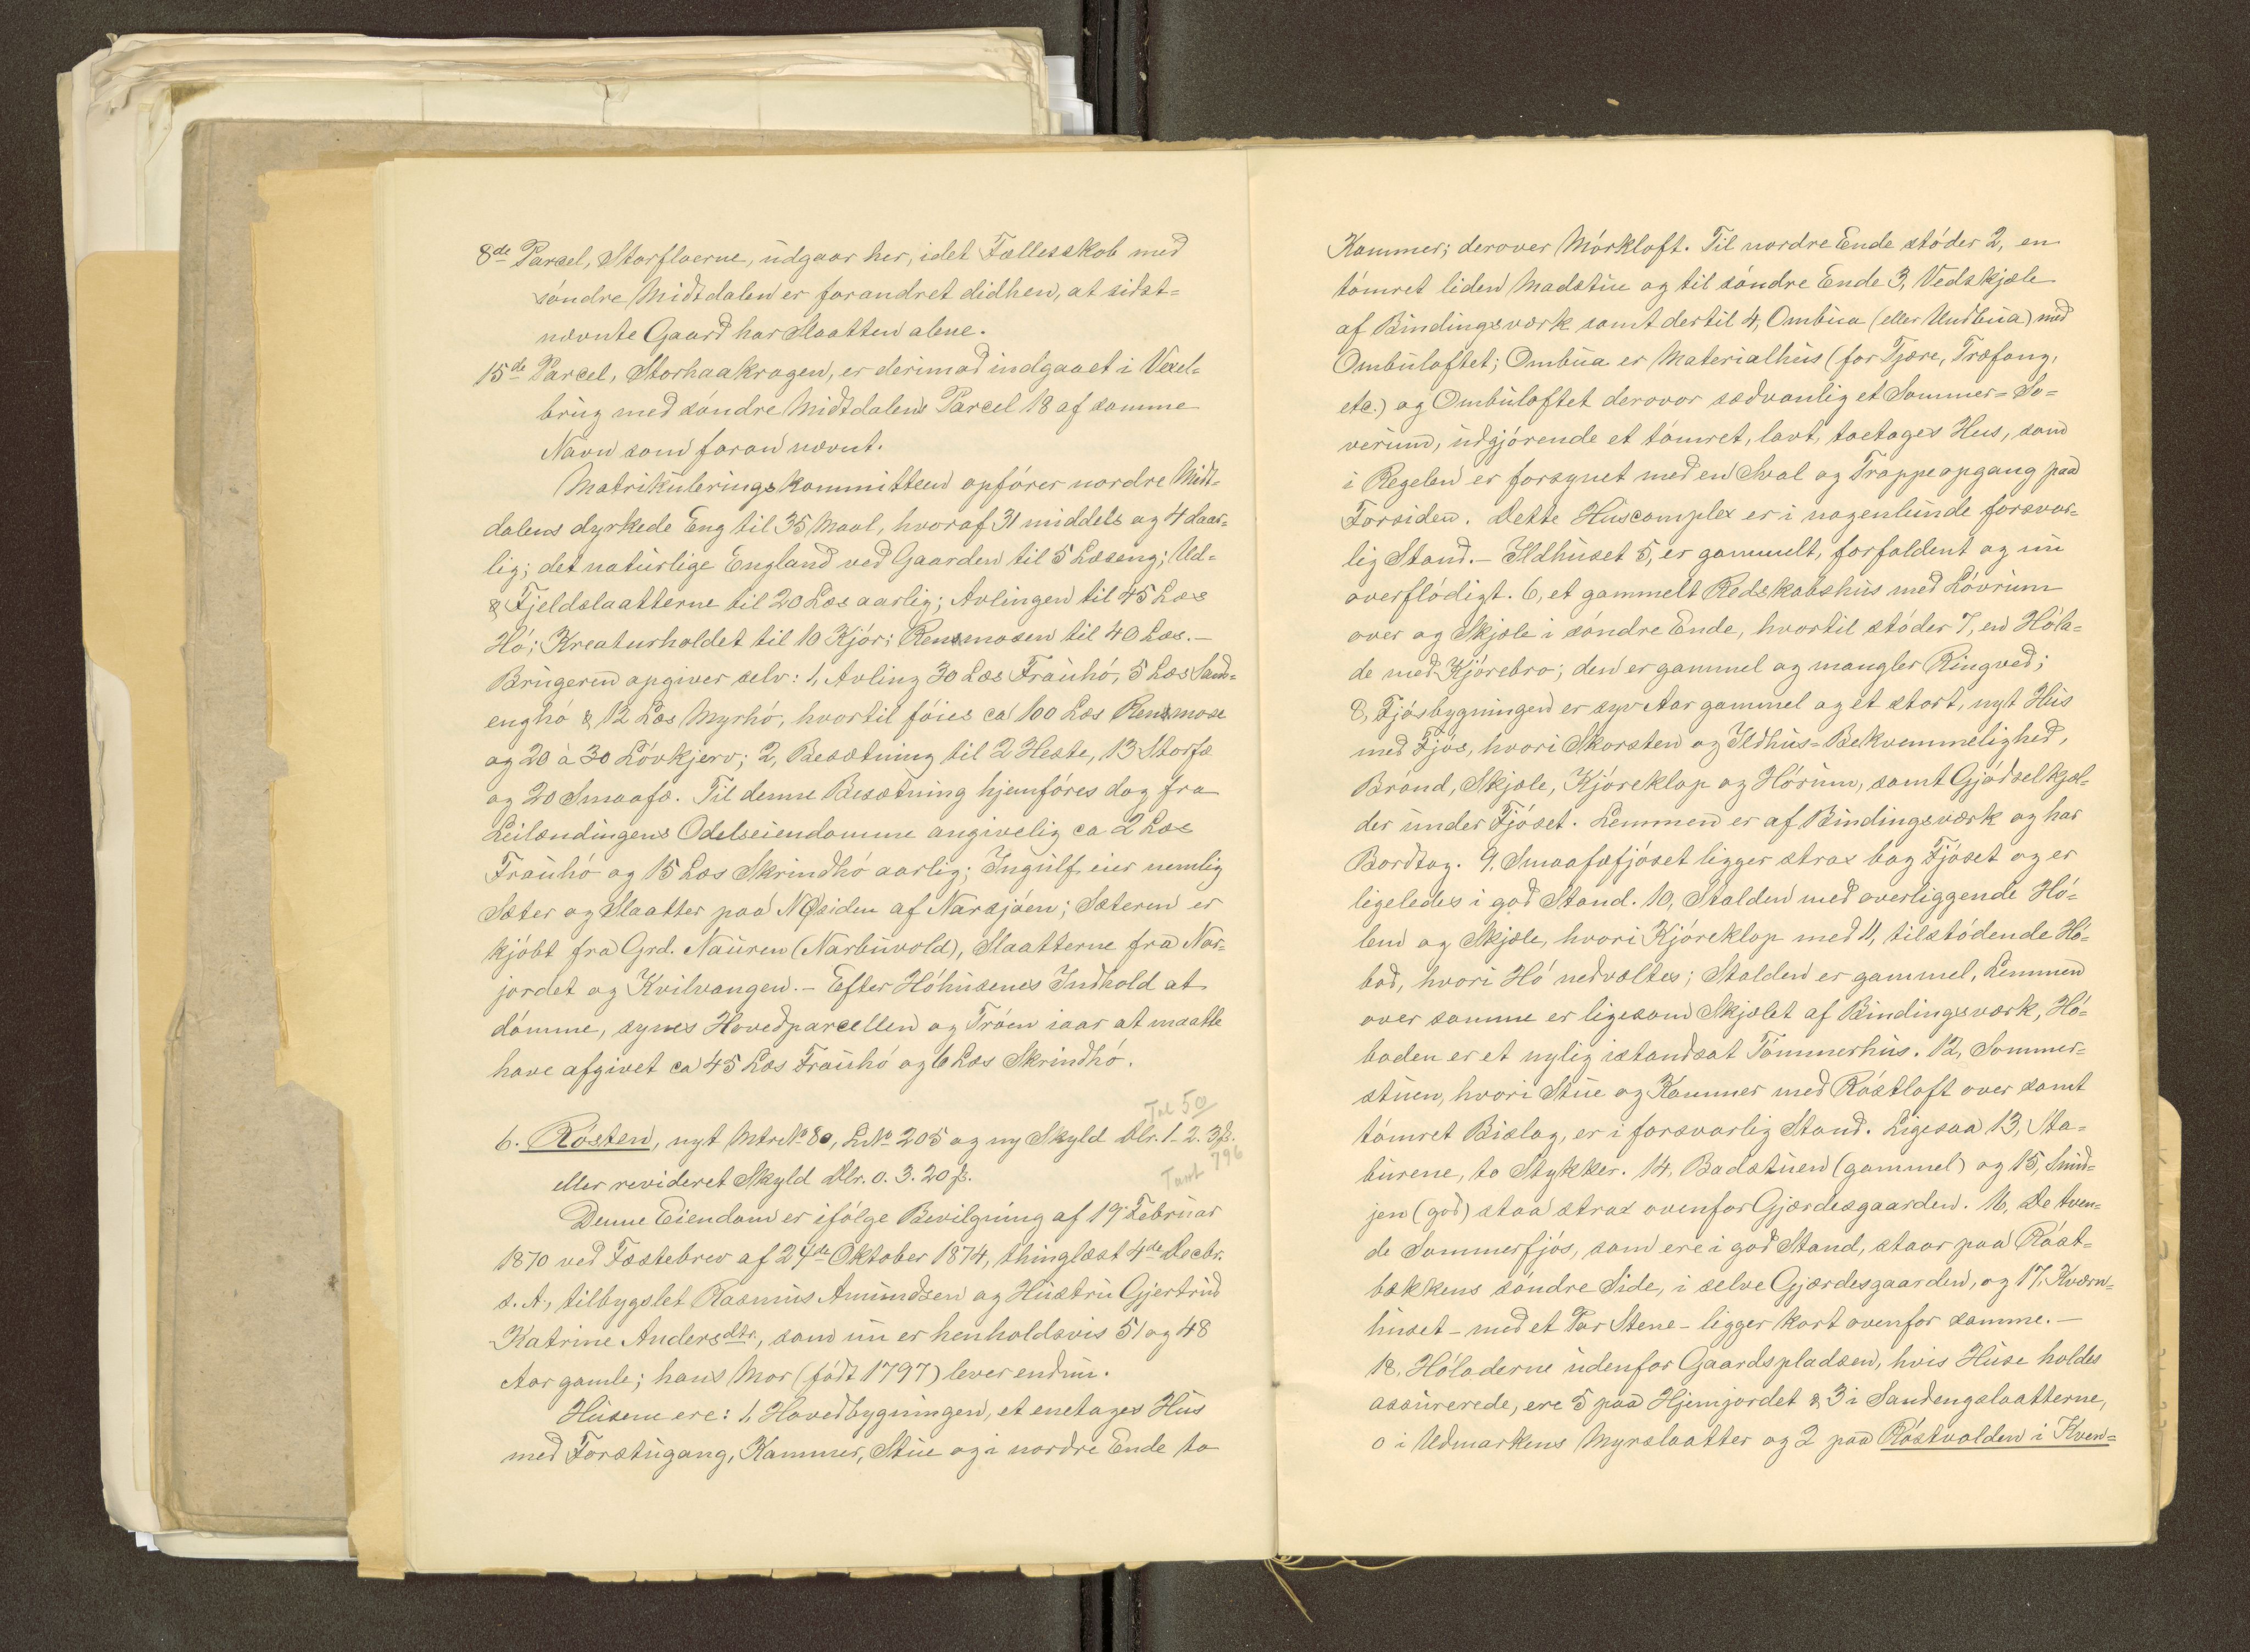 8de Parcel, Storfloerne, udgaar her, idet Fællesskab med
söndre Midtdalen er forandret didhen, at sidst=
nævnte Gaard har Slaatten alene.
15de Parcel, Storhaakragen, er derimod indgaaet i Vexel=
brug med söndre Midtdalens Parcel 18 af samme
Navn som foran nævnt.
Matrikuleringskommitteen opförer nordre Midt=
dalens dyrkede Eng til 35 Maal, hvoraf 31 middels og 4 daar=
lig; det naturlige England ved Gaarden til 5 Læseng; Ud=
& Fjeldslaatterne til 20 Læs aarlig; Avlingen til 45 Læs
Hö; Kreaturholdet til 10 Kjör; Rensmosen til 40 Læs.—
Brugeren opgiver selv: 1, Avling 30 Læs Frauhö, 5 Læs Sand=
enghö & 12 Læs Myrhö, hvortil föies ca 100 Læs Rensmose
og 20 à 30 Lövkjerv; 2, Besætning til 2 Heste, 13 Storfæ
og 20 Smaafæ. Til denne Besætning hjemföres dog fra
Leilændingens Odelseiendomme angivelig ca 2 Læs
Frauhö og 15 Læs Skrindhö aarlig; Ingulf eier nemlig
Sæter og Slaatter paa NØsiden af Narsjöen; Sæteren er
kjöbt fra Grd. Nauren (Narbuvold), Slaatterne fra Nar=
jordet og Kvilvangen.— Efter Höhusenes Indhold at
dömme, synes Hovedparcellen og Tröen iaar at maatte
have afgivet ca 45 Læs Frauhö og 6 Læs Skrindhö.
Tal 50
6. Rösten, nyt Mtr№ 80, L№ 205 og ny Skyld Dlr. 1-2. 3ß.
796
eller revideret Skyld Dlr. 0. 3. 20ß.
Denne Eiendom er ifölge Bevilgning af 19 Februar
1870 ved Fæstebrev af 24de Oktober 1874, thinglæst 4de Decbr.
s. A., tilbygslet Rasmus Amundsen og Hustru Gjertrud
Katrine Andersdtr., som nu er henholdsvis 51 og 48
Aar gamle; hans Mor (född 1797) lever endnu.
Husene ere: 1, Hovedbygningen, et enetages Hus
med Forstugang, Kammer, Stue og i nordre Ende to
Kammer; derover Mörkloft. Til nordre Ende stöder 2, en
tömret liden Madstue og til söndre Ende 3, Vedskjæle
af Bindingsværk samt dertil 4, Ombua (eller Undbua) med
Ombuloftet; Ombua er Materialhus (for Tjære, Træfang,
etc.) og Ombuloftet derover sædvanlig et Sommer=So=
verum, udgjörende et tömret, lavt, toetages Hus, som
i Regelen er forsynet med en Sval og Trappeopgang paa
Forsiden. Dette Huscomplex er i nogenlunde forsvar=
lig Stand.— Ildhuset 5, er gammelt, forfaldent og nu
overflödigt. 6, et gammelt Redskabshus med Lövrum
over og Skjæle i söndre Ende, hvortil stöder 7, en Höla=
de med Kjörebro; den er gammel og mangler Ringved;
8, Fjösbygningen er syv Aar gammel og et stort, nyt Hus
med Fjös, hvori Skorsten og Ildhus=Bekvemmelighed,
Brönd, Skjæle, Kjöreklop og Hörum, samt Gjödselkjæl=
der under Fjöset. Lemmen er af Bindingsværk og har
Bordtag. 9. Smaafæfjöset ligger strax bag Fjöset og er
ligeledes i god Stand. 10, Stalden med overliggende Hö=
lem og Skjæle, hvori Kjöreklop med 11, tilstödende Hö=
bod, hvori Hö nedvæltes; Stalden er gammel, Lemmen
over samme er ligesom Skjælet af Bindingsværk, Hö=
boden er et nylig istandsat Tömmerhus. 12, Sommer=
stuen, hvori Stue og Kammer med Röstloft over samt
tömret Bislag, er i forsvarlig Stand. Ligesaa 13, Sta=
burene, to Stykker. 14, Badstuen (gammel) og 15, Smid=
jen (god) staa strax ovenfor Gjærdesgaarden. 16, De tven=
de Sommerfjös, som ere i god Stand, staar paa Röst=
bækkens söndre Side, i selve Gjærdesgaarden, og 17, Kværn=
huset – med et Par Stene – ligger kort ovenfor samme.—
18, Höladerne udenfor Gaardspladsen, hvis Huse holdes
assurerede, ere 5 paa Hjemjordet & 3 i Sandengslaatterne,
0 i Udmarkens Myrslaatter og 2 paa Röstvolden i Kven=